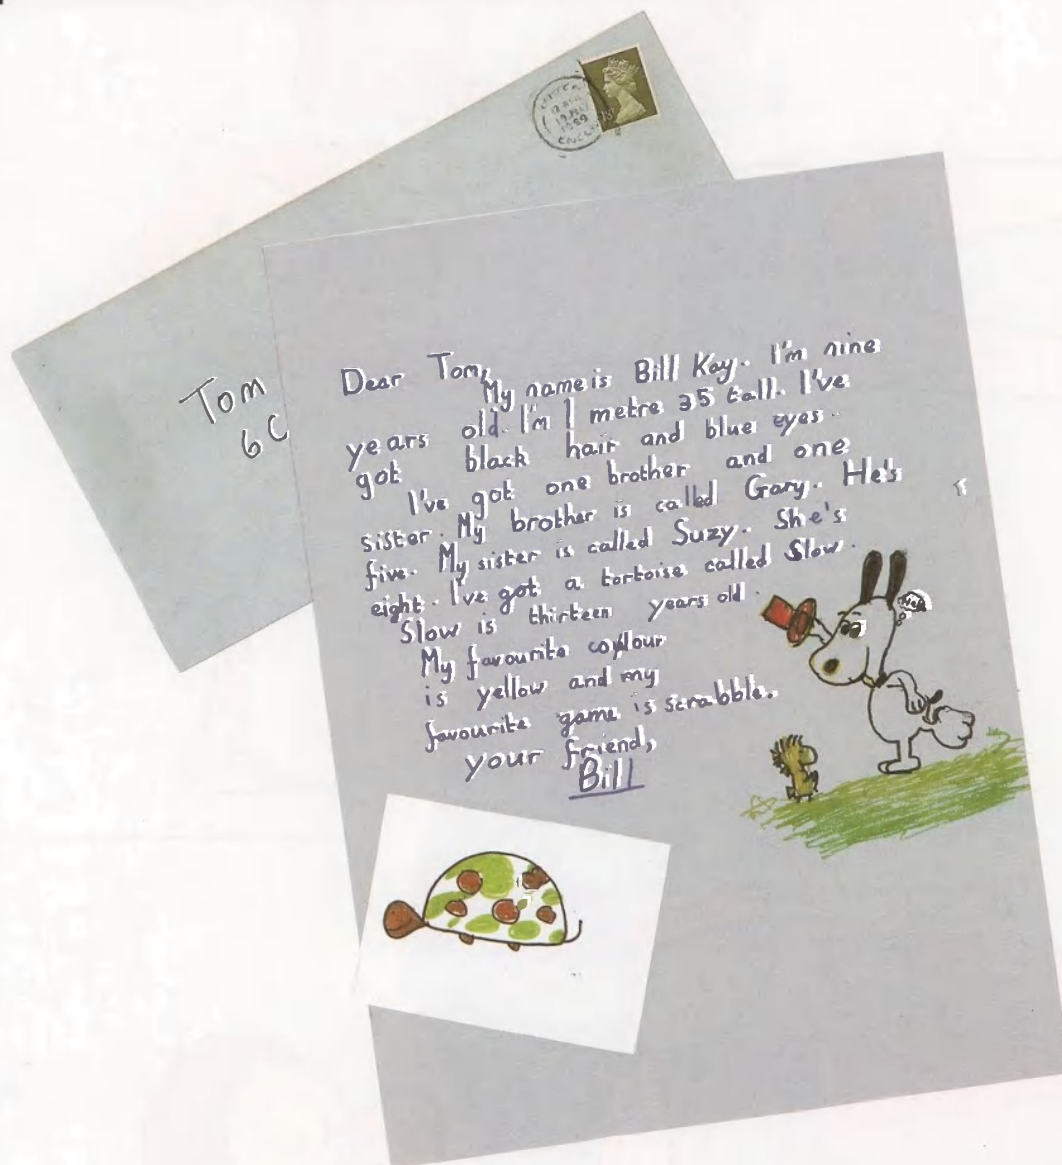 1989
Tom
6C
Dear Tom,
My name is Bill Kay. I'm nine
years old. I'm 1 metre 35 tall. I've
got black hair and blue eyes.
I've got one brother and one
sister. My brother is called Gary. He's
five. My sister is called Suzy. She's
eight. I've got a tortoise called Slow.
Slow is thirteen years old.
My favourite colour
is yellow and my
favourite game is scrabble.
your friend,
Bill